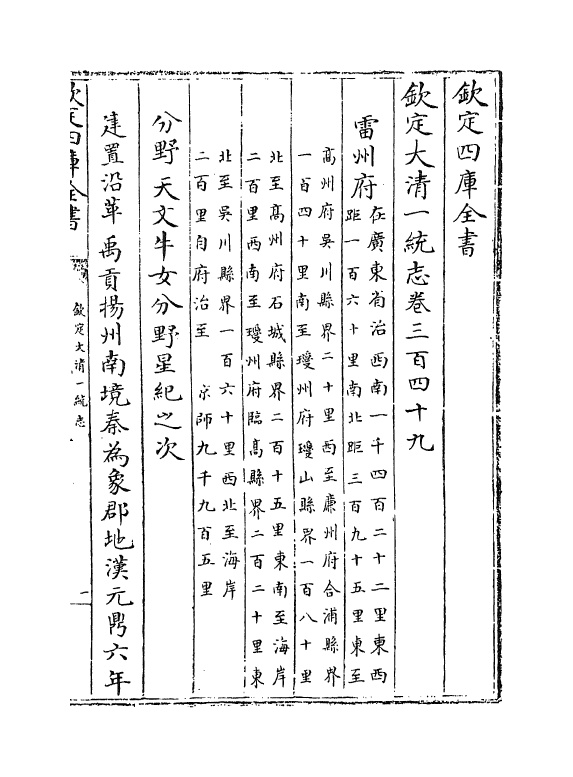 欽定四庫全書
欽定大清一統志卷三百四十九
雷州府
在廣東省治西南一千四百二十二里東西
距一百六十里南北距三百九十五里東至
高州府吳川縣界二十里西至廉州府合浦縣界
一百四十里南至瓊州府瓊山縣界一百八十里
北至高州府石城縣界二百十五里東南至海岸
二百里西南至瓊州府臨高縣界二百二十里東
北至吳川縣界一百六十里西北至海岸
二百里自府治至 京師九千九百五里
分野 天文牛女分野星紀之次
建置沿革 禹貢揚州南境秦為象郡地漢元鼎六年
欽定四庫全書
欽定大清一統志
一